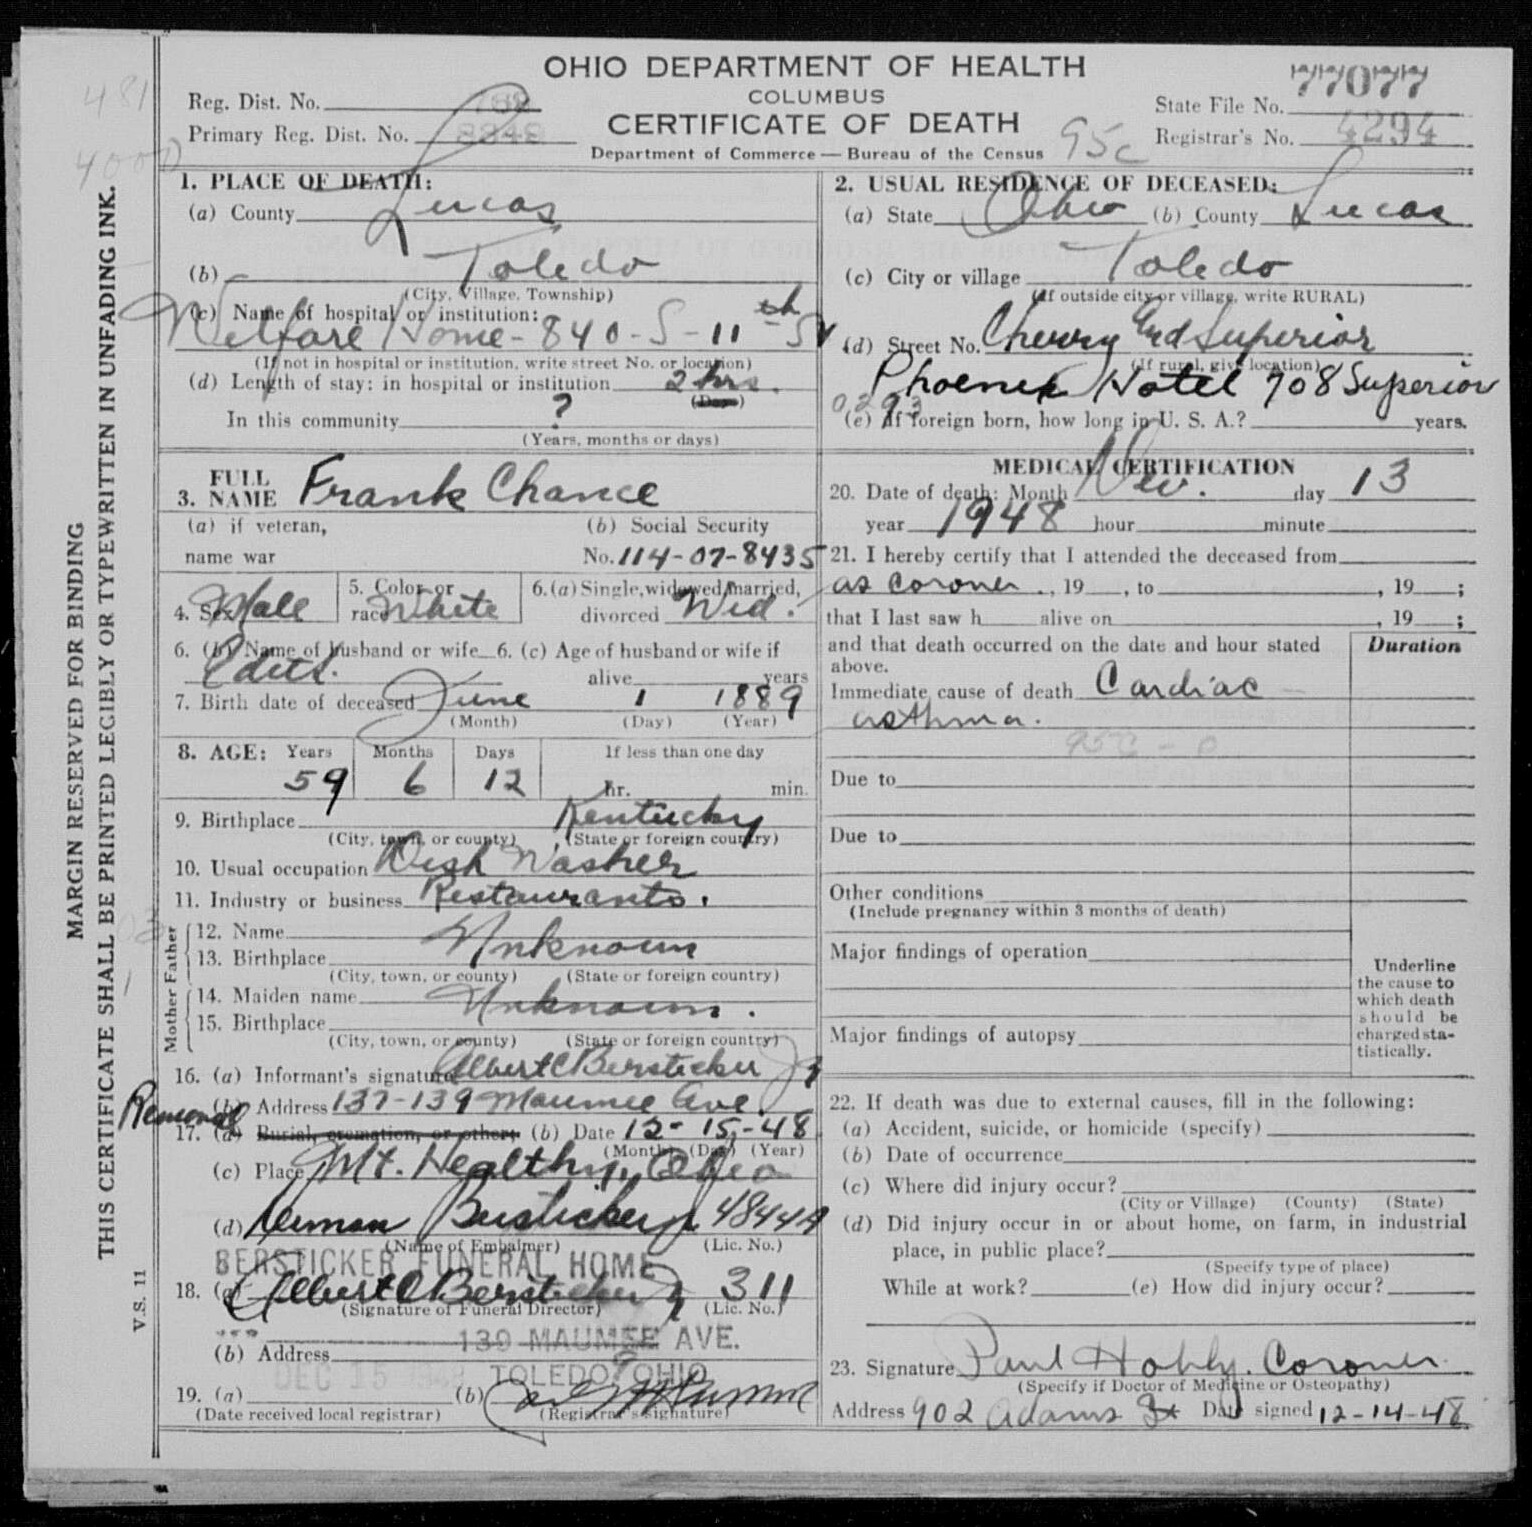 OHIO DEPARTMENT OF HEALTH
COLUMBUS
CERTIFICATE OF DEATH
Department of Commerce — Bureau of the Census
95c
Reg. Dist. No.
Primary Reg. Dist. No.
State File No. 77077
Registrar's No. 4294
481
MARGIN RESERVED FOR BINDING
THIS CERTIFICATE SHALL BE PRINTED LEGIBLY OR TYPEWRITTEN IN UNFADING INK.
V.S. 11
1. PLACE OF DEATH:
(a) County Lucas
(b) Toledo
(City, Village, Township)
(c) Name of hospital or institution:
Welfare Home - 840 - S - 11th St
(If not in hospital or institution, write street No. or location)
(d) Length of stay: in hospital or institution 2 hrs.
(Day)
In this community ?
(Years, months or days)
2. USUAL RESIDENCE OF DECEASED:
(a) State Ohio (b) County Lucas
(c) City or village Toledo
(If outside city or village, write RURAL)
(d) Street No. Cherry and Superior
(If rural, give location)
Phoenix Hotel 708 Superior
0293
(e) If foreign born, how long in U. S. A.? years.
3. FULL NAME Frank Chance
(a) if veteran,
name war
(b) Social Security
No. 114-07-8435
4. Sex Male
5. Color or race White
6. (a) Single, widowed, married,
divorced Wid.
6. (b) Name of husband or wife 6. (c) Age of husband or wife if
alive years
7. Birth date of deceased June 1 1889
(Month) (Day) (Year)
8. AGE: Years Months Days If less than one day
59 6 12 hr. min.
9. Birthplace Kentucky
(City, town, or county) (State or foreign country)
10. Usual occupation Dish Washer
11. Industry or business Restaurants.
Father
12. Name Unknown
13. Birthplace
(City, town, or county) (State or foreign country)
Mother
14. Maiden name Unknown.
15. Birthplace
(City, town, or county) (State or foreign country)
16. (a) Informant's signature Albert C Bersticker Jr
(b) Address 137-139 Maumee Ave.
Removal
17. (a) Burial, cremation, or other: (b) Date 12-15-48
(Month) (Day) (Year)
(c) Place Mt. Healthy, Ohio
(d) Herman Bersticker Jr 4844A
(Name of Embalmer) (Lic. No.)
BERSTICKER FUNERAL HOME
18. (a) Albert C Bersticker Jr 311
(Signature of Funeral Director) (Lic. No.)
139 MAUMEE AVE.
(b) Address
TOLEDO 9 OHIO
DEC 15 1948
19. (a) (b)
(Date received local registrar) (Registrar's signature)
MEDICAL CERTIFICATION
20. Date of death: Month Nov. day 13
year 1948 hour minute
21. I hereby certify that I attended the deceased from
as coroner, 19 , to , 19 ;
that I last saw h alive on , 19 ;
and that death occurred on the date and hour stated
above.
Duration
Immediate cause of death Cardiac
asthma.
95c - 0
Due to
Due to
Other conditions
(Include pregnancy within 3 months of death)
Major findings of operation
Major findings of autopsy
Underline
the cause to
which death
should be
charged sta-
tistically.
22. If death was due to external causes, fill in the following:
(a) Accident, suicide, or homicide (specify)
(b) Date of occurrence
(c) Where did injury occur?
(City or Village) (County) (State)
(d) Did injury occur in or about home, on farm, in industrial
place, in public place?
(Specify type of place)
While at work? (e) How did injury occur?
23. Signature Paul Hohly. Coroner
(Specify if Doctor of Medicine or Osteopathy)
Address 902 Adams St Date signed 12-14-48